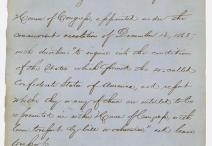 House of Congress, appointed under the
concurrent resolution of December 13, 1865,
with direction to inquire into the condition
of the States which formed the so-called
Confederate States of America, and report
whether they or any of them are entitled to be
represented in either House of Congress, with
leave to report by bill or otherwise" ask leave